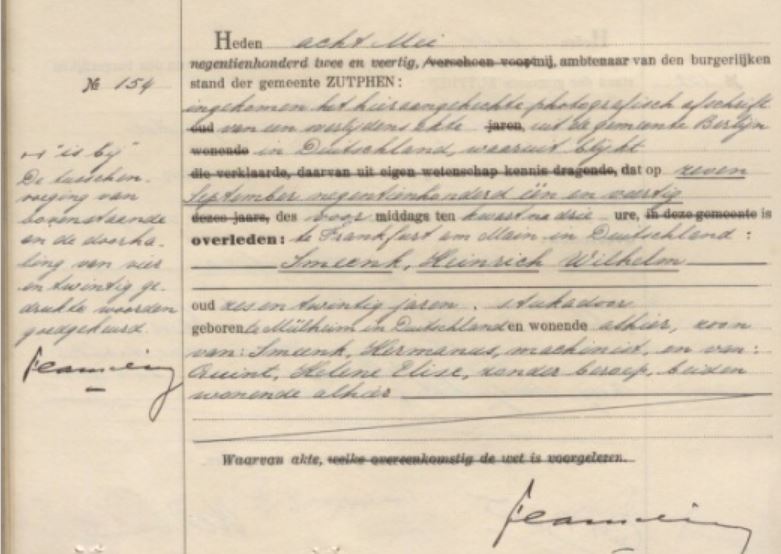 Heden acht Mei
negentienhonderd twee en veertig, verscheen voor mij, ambtenaar van den burgerlijken
stand der gemeente ZUTPHEN:
ingekomen het hieraangehechte photografisch afschrift
oud van een overlijdens akte jaren, uit de gemeente Berlijn
wonende in Deutschland, waaruit blijkt
die verklaarde, daarvan uit eigen wetenschap kennis dragende, dat op zeven
September negentienhonderd één en veertig
dezes jaars, des voor middags ten kwart na drie ure, in deze gemeente is
overleden: te Frankfurt am Main in Duitschland:
Smeenk, Heinrich Wilhelm
oud zes en twintig jaren, stukadoor
geboren te Mülheim in Duitschland en wonende alhier, zoon
van: Smeenk, Hermanus, machinist, en van:
Quint, Helene Elise, zonder beroep, beiden
wonende alhier
Waarvan akte, welke overeenkomstig de wet is voorgelezen.
№ 154
"is bij"
De tusschen-
voeging van
bovenstaande
en de doorha-
ling van vier
en twintig ge-
drukte woorden
goedgekeurd.